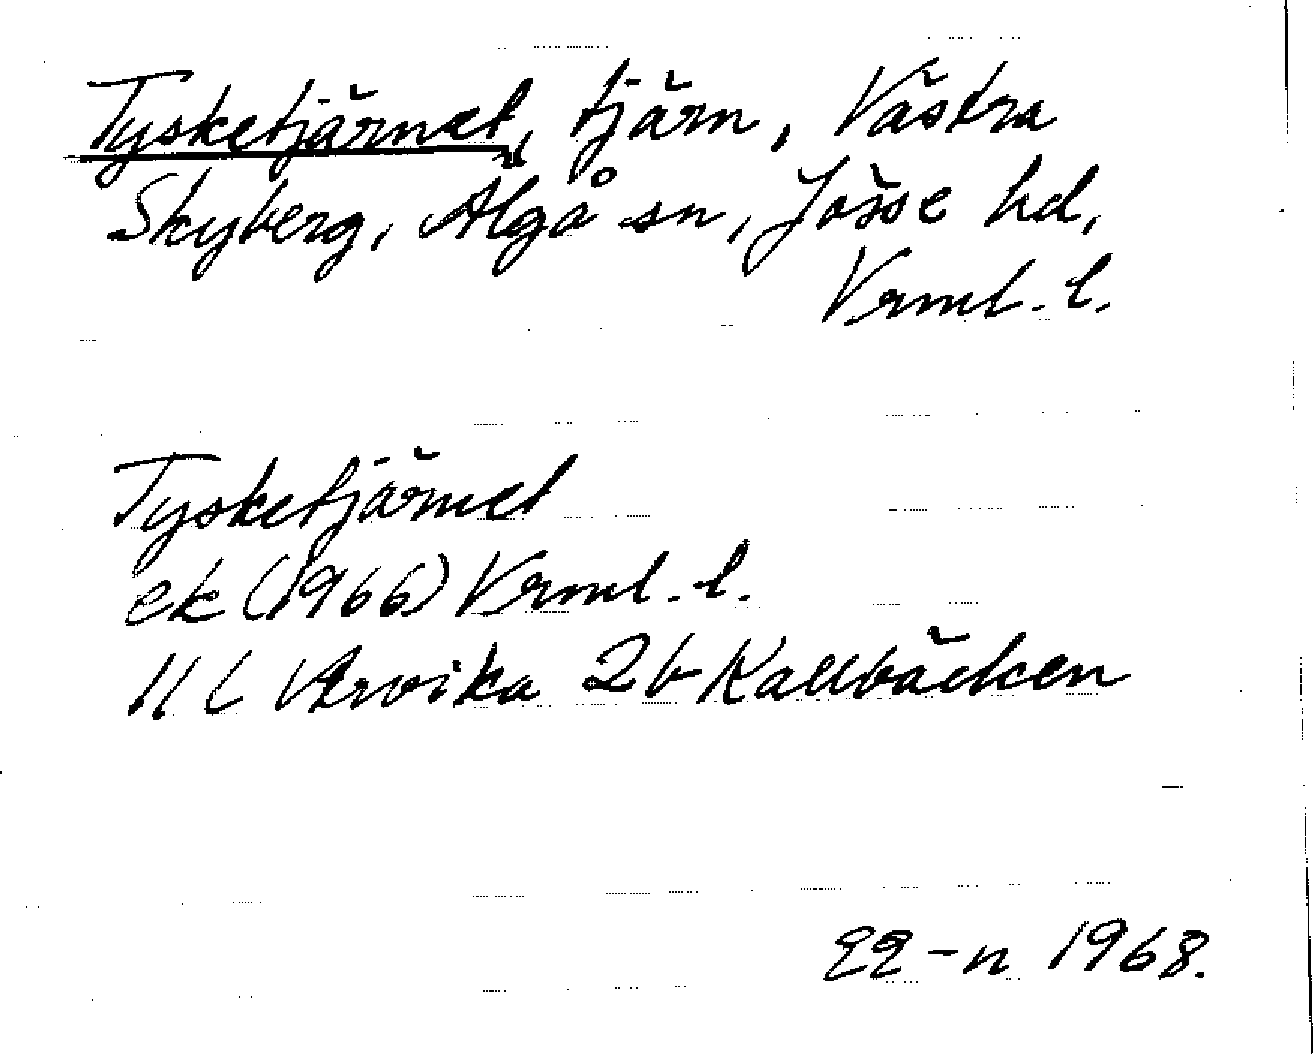 Tysketjärnet, tjärn, Västra
Skyberg, Älgå sn, Jösse hd,
Vrml. l.
Tysketjärnet
ek (1966) Vrml. l.
11 C Arvika 2b Kallbäcken
EE-n 1968.